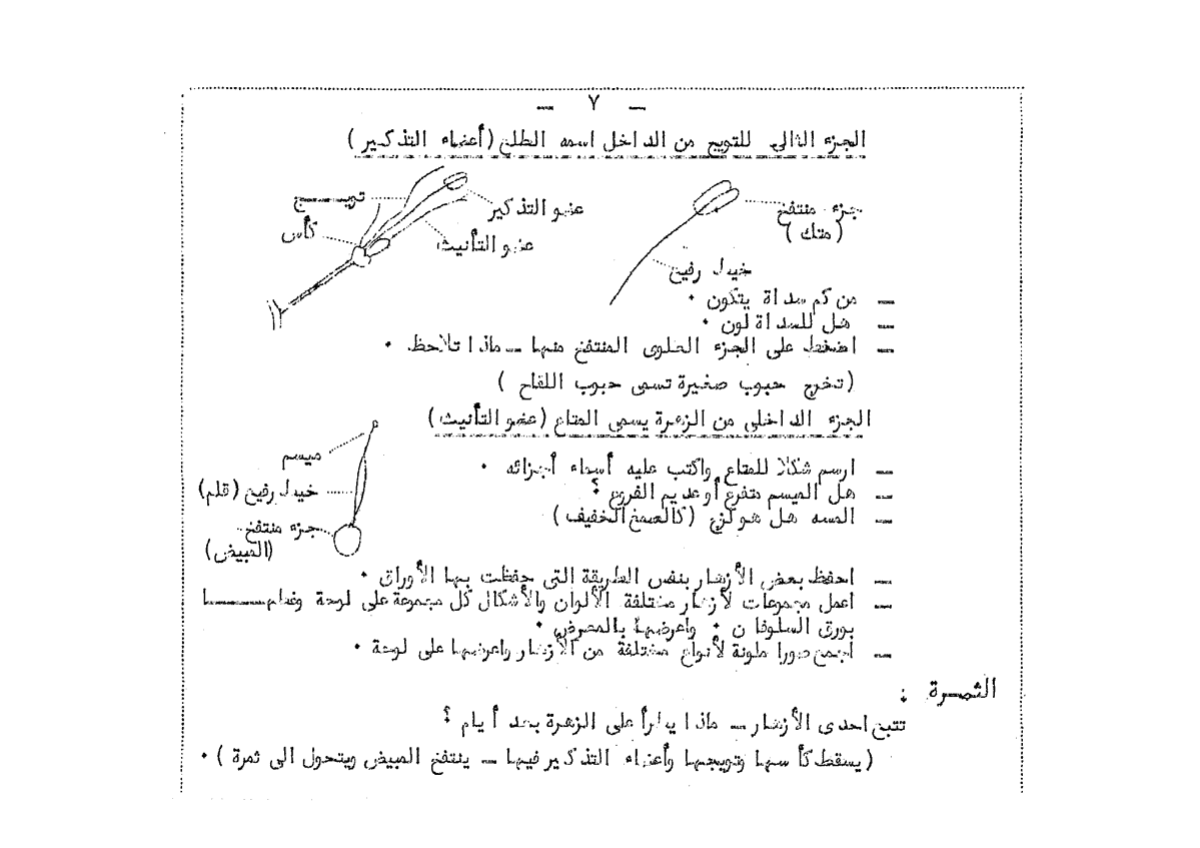 - ٧ -
الجزء التالي للتويج من الداخل اسمه الطلع (أعضاء التذكير)
تويـــج
عضو التذكير
جزء منتفخ
(متك)
كأس
عضو التأنيث
خيط رفيع
— من كم سداة يتكون .
— هل للسداة لون .
— اضغط على الجزء العلوى المنتفخ منها — ماذا تلاحظ .
(تخرج حبوب صغيرة تسمى حبوب اللقاح)
الجزء الداخلى من الزهرة يسمى المتاع (عضو التأنيث)
ميسم
خيط رفيع (قلم)
جزء منتفخ
(المبيض)
— ارسم شكلا للمتاع واكتب عليه أسماء أجزائه .
— هل الميسم متفرع أو عديم الفروع ؟
— المسه هل هو لزج (كالصمغ الخفيف)
— احفظ بعض الأزهار بنفس الطريقة التى حفظت بها الأوراق .
— اعمل مجموعات لأزهار مختلفة الألوان والأشكال كل مجموعة على لوحة وغطهـــا
بورق السلوفان . واعرضها بالمعرض .
— اجمع صورا ملونة لأنواع مختلفة من الأزهار واعرضها على لوحة .
الثمـرة :
تتبع احدى الأزهار — ماذا يطرأ على الزهرة بعد أيام ؟
(يسقط كأسها وتويجها وأعضاء التذكير فيها — ينتفخ المبيض ويتحول الى ثمرة) .